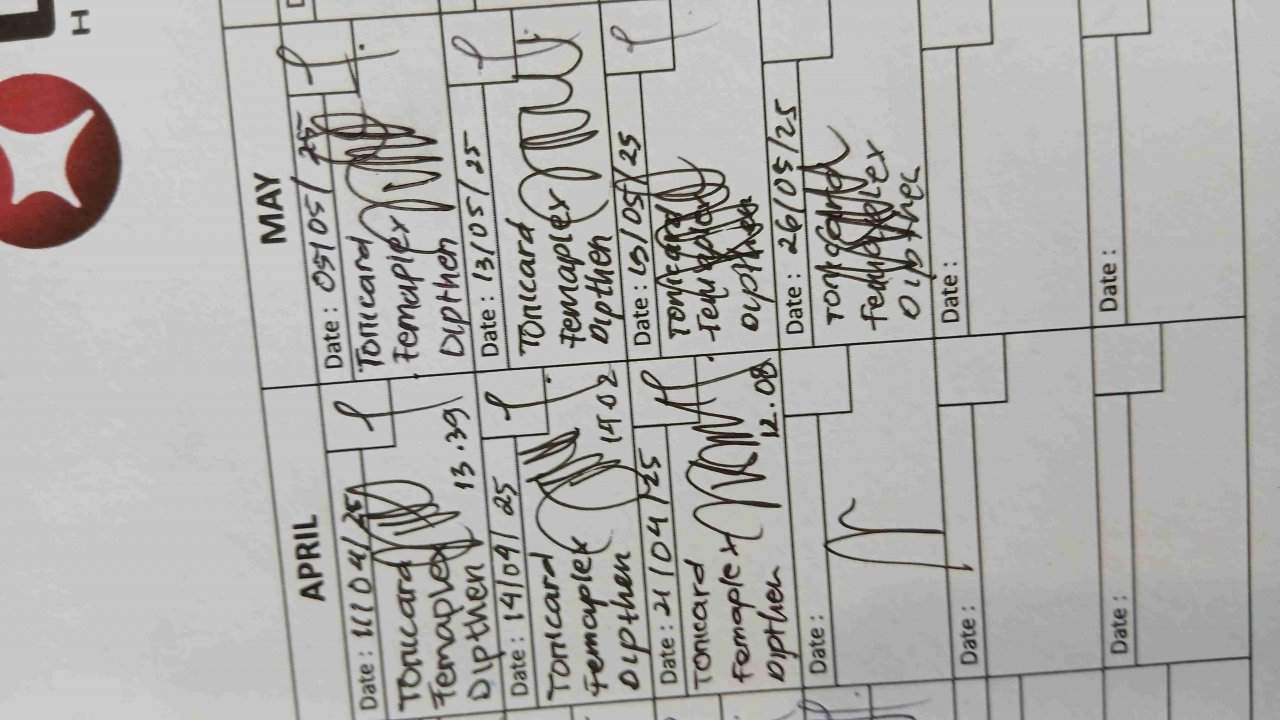 APRIL
Date : 11/04/25
Tonicard
Femaplex
Dipthen 13.39
Date : 14/04/25
Tonicard
Femaplex
Dipthen 14 02
Date : 21/04/25
Tonicard
Femaplex
Dipthen 12.08
Date :
Date :
Date :
MAY
Date : 05/05/25
Tonicard
Femaplex
Dipthen
Date : 13/05/25
Tonicard
Femaplex
Dipthen
Date : 15/05/25
Tonicard
Femaplex
Dipthen
Date : 26/05/25
Tonicard
Femaplex
Dipthen
Date :
Date :